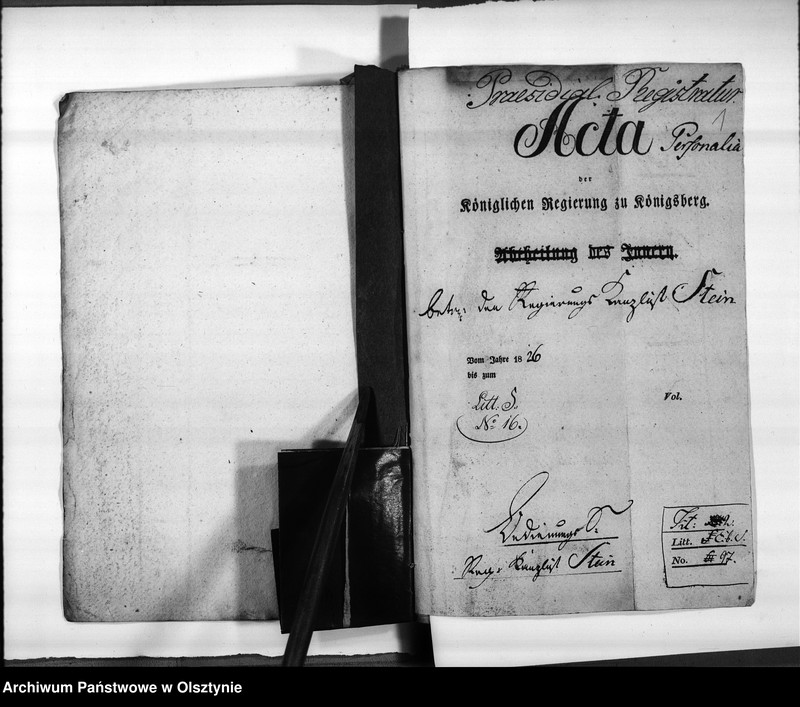 Praesidial Registratur.
1
Acta Personalia
der
Königlichen Regierung zu Königsberg.
Abtheilung des Innern.
betr: den Regierungs Kanzlist Stein
Vom Jahre 1826
bis zum
Litt. S.
No 16.
Vol.
Bedienungs S.
Reg: Kanzlist Stein
Tit:
Litt.
No. 97.
Archiwum Państwowe w Olsztynie